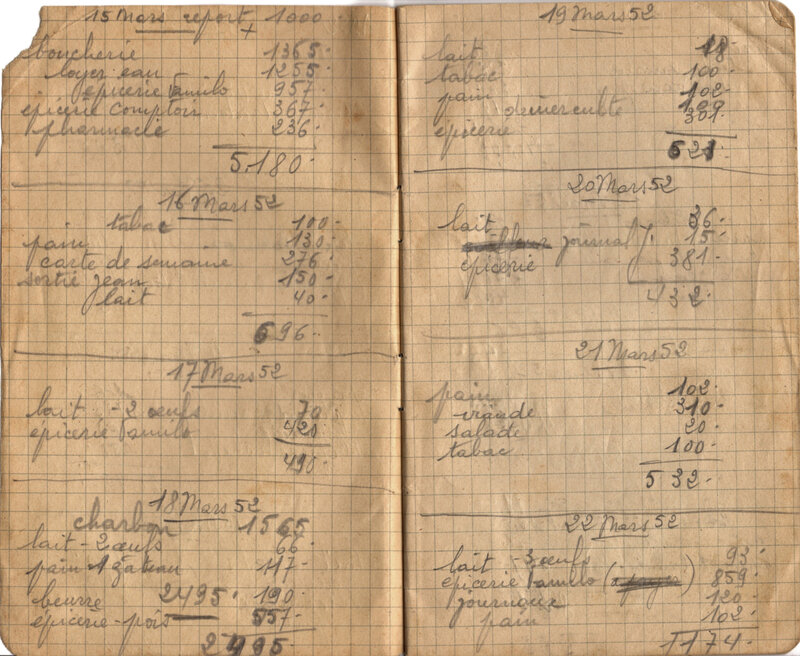 15 Mars report 1000
+
boucherie 1365.
loyer eau 1255.
epicerie Familo 957.
epicerie comptoir 367.
pharmacie 236.
5.180.
16 Mars 52
tabac 100.
pain 130.
carte de semaine 276.
sortie jean 150.
lait 40.
696.
17 Mars 52
lait - 2 œufs 70
epicerie Familo 420.
490.
18 Mars 52
charbon 1565
lait - 2 œufs 66.
pain 1 gateau 117.
beurre 2495. 190
epicerie - pois 557.
2495
19 Mars 52
lait 18.
tabac 100.
pain 102.
109
epicerie 301.
621
20 Mars 52
lait 36.
journal 15.
epicerie 381.
432.
21 Mars 52
pain 102.
viande 310.
salade 20.
tabac 100.
532.
22 Mars 52
lait - 3 œufs 93.
epicerie Familo 859.
journaux 120.
pain 102.
1174.